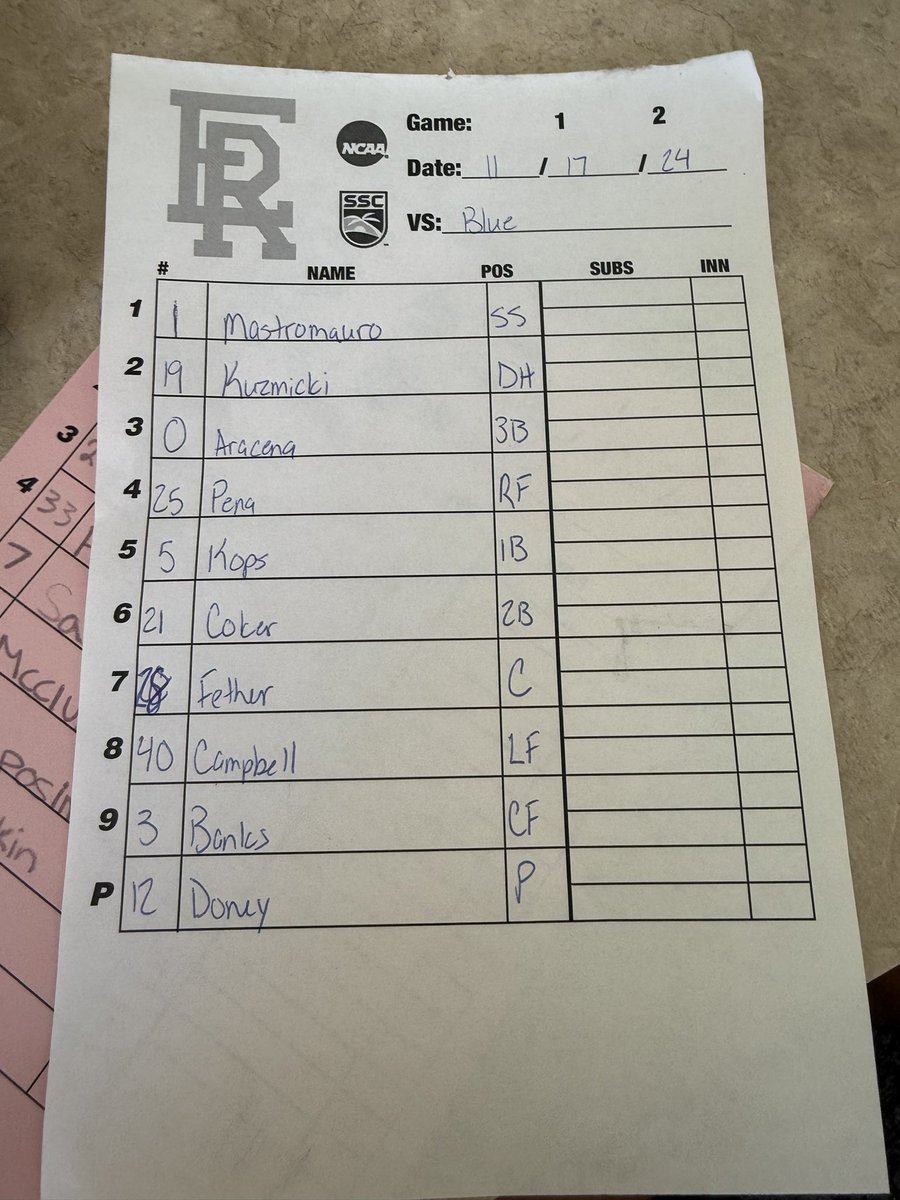 ER
NCAA
SSC
Game: 1 2
Date: 11 / 17 / 24
VS: Blue
# NAME POS SUBS INN
1 1 Mastromauro SS
2 19 Kuzmicki DH
3 0 Aracena 3B
4 25 Pena RF
5 5 Kops 1B
6 21 Coker 2B
7 Fether C
8 40 Campbell LF
9 3 Banks CF
P 12 Doney P
3 2
4 33
7
McClu
Poslin
kin